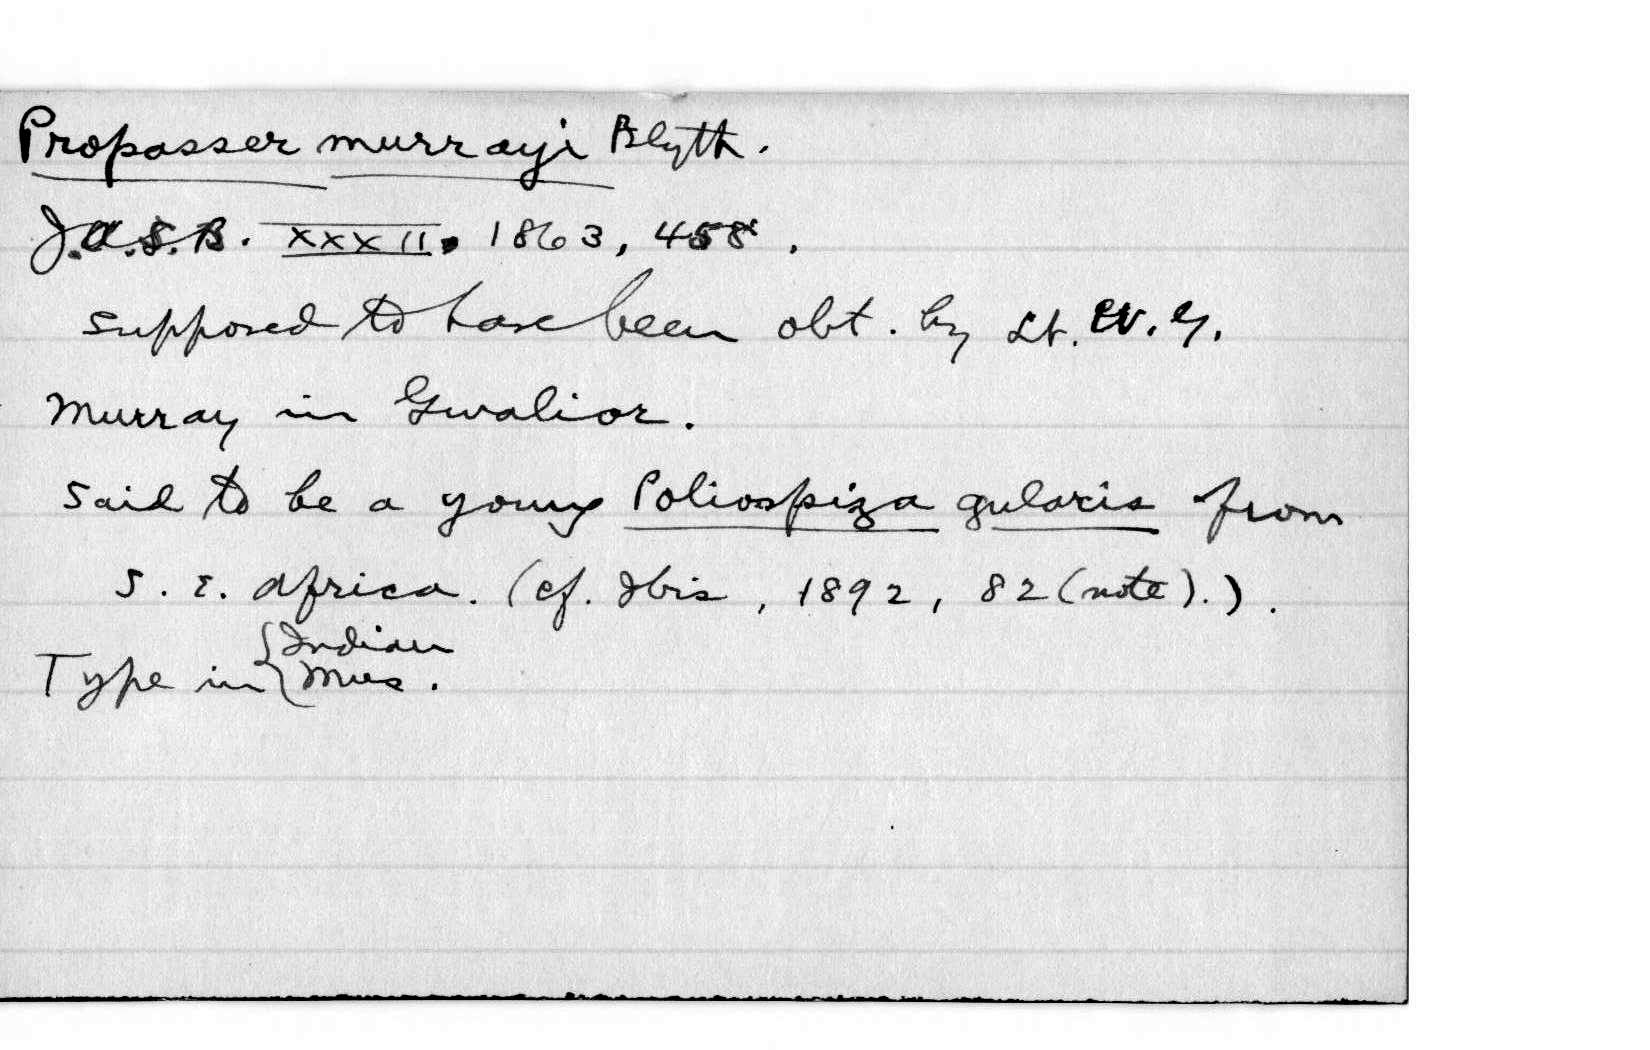 Propasser murrayi Blyth.
J.A.S.B. XXXII. 1863, 458.
supposed to have been obt. by Lt. W. G.
Murray in Gwalior.
said to be a young Poliospiza gularis from
S. E. Africa. (cf. Ibis, 1892, 82 (note).).
Type in { Indian
Mus.